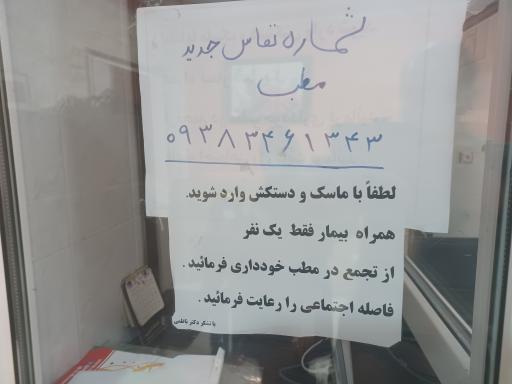 شماره تماس جدید
مطب
۰۹۳۸۳۴۶۱۳۴۳
لطفاً با ماسک و دستکش وارد شوید.
همراه بیمار فقط یک نفر
از تجمع در مطب خودداری فرمائید.
فاصله اجتماعی را رعایت فرمائید.
با تشکر دکتر ناظمی